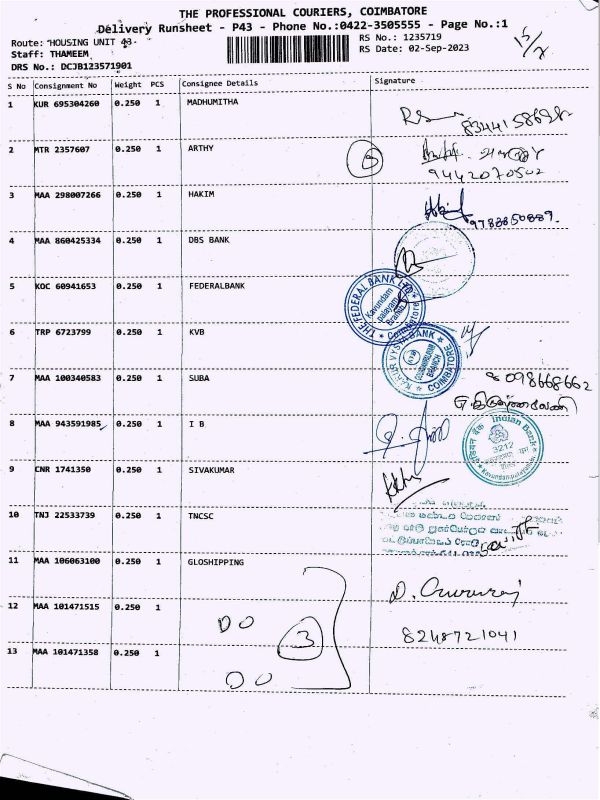 THE PROFESSIONAL COURIERS, COIMBATORE
Delivery Runsheet - P43 - Phone No.:0422-3505555 - Page No.:1
Route: HOUSING UNIT 43- RS No.: 1235719
Staff: THAMEEM RS Date: 02-Sep-2023
DRS No.: DCJB123571901
S No Consignment No Weight PCS Consignee Details Signature
1 KUR 695304260 0.250 1 MADHUMITHA
2 MTR 2357607 0.250 1 ARTHY
9442070502
3 MAA 298007266 0.250 1 HAKIM
4 MAA 860425334 0.250 1 DBS BANK
5 KOC 60941653 0.250 1 FEDERALBANK
THE FEDERAL BANK LTD. Kavundam palayam Branch Coimbatore
6 TRP 6723799 0.250 1 KVB
KARUR VYSYA BANK COIMBATORE
7 MAA 100340583 0.250 1 SUBA
8 MAA 943591985 0.250 1 I B
Indian Bank 3212
9 CNR 1741350 0.250 1 SIVAKUMAR
10 TNJ 22533739 0.250 1 TNCSC
11 MAA 106063100 0.250 1 GLOSHIPPING
12 MAA 101471515 0.250 1 DO
3
8248721041
13 MAA 101471358 0.250 1 DO